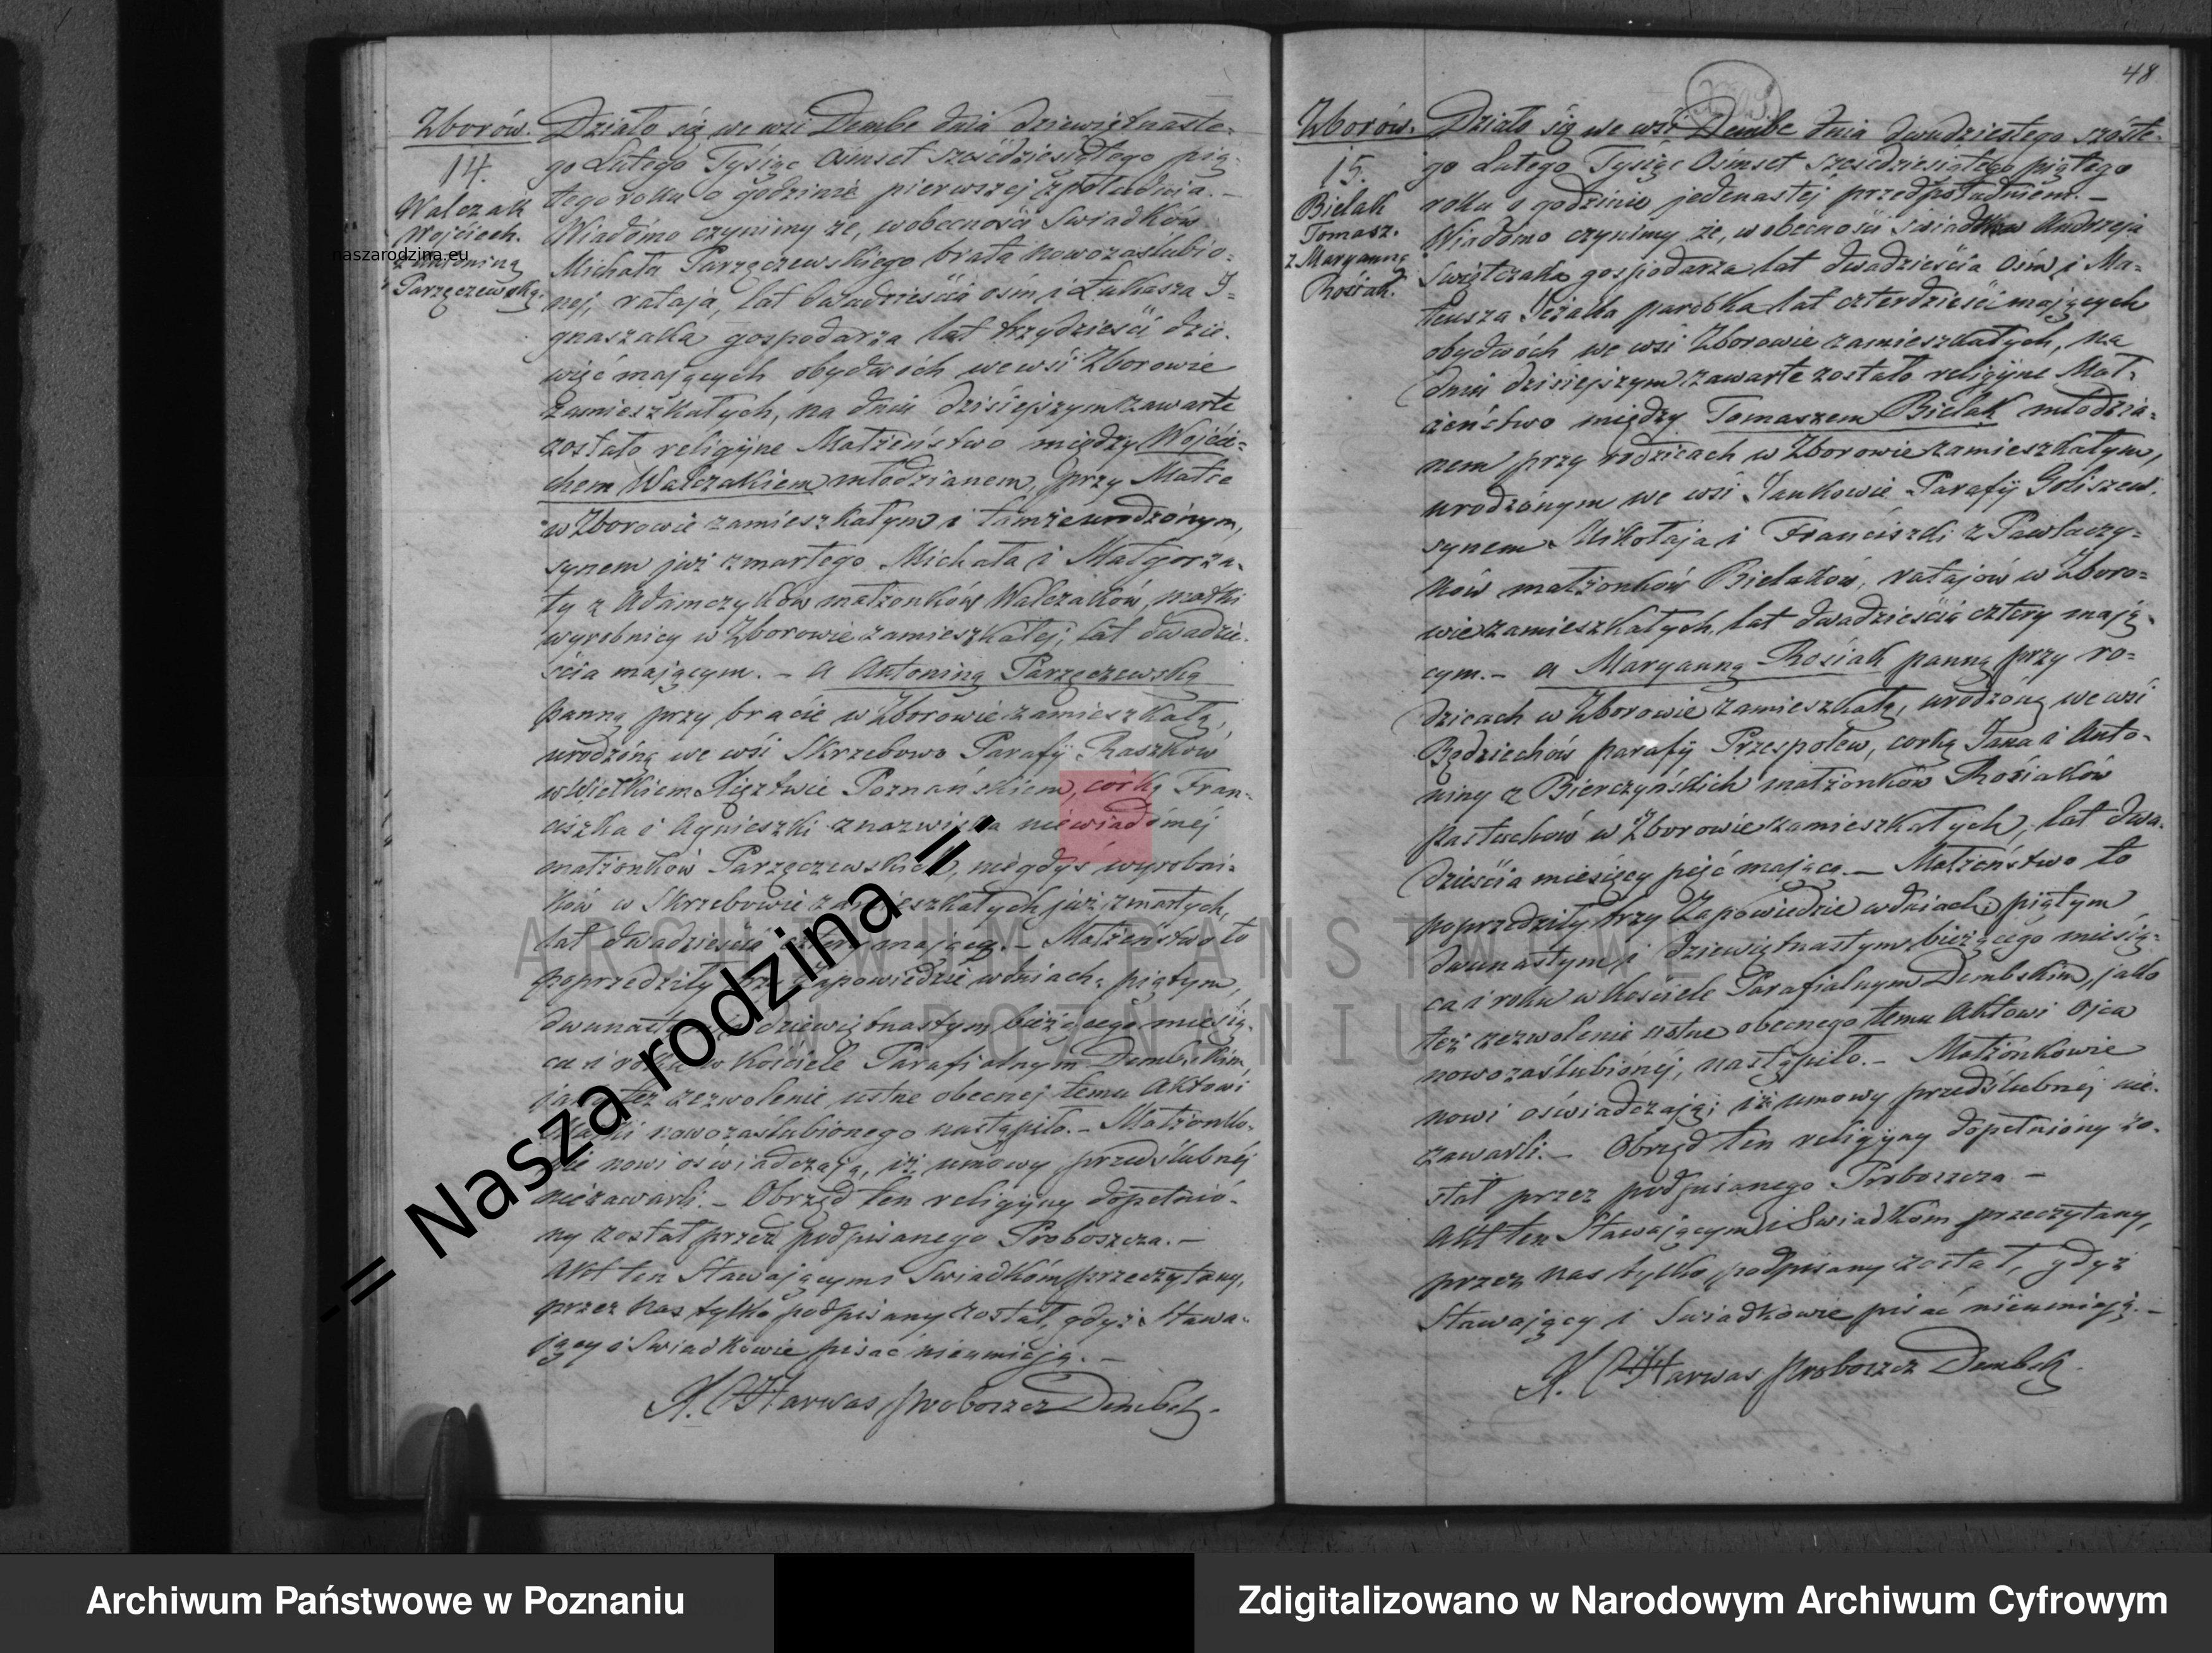 Zborów.
14.
Walczak
Wojciech.
z Antoniną
Parzęczewską.
Działo się we wsi Dembe dnia dziewiętnaste-
go Lutego Tysiąc Ośmset sześćdziesiątego pią-
tego roku o godzinie pierwszej z południa. –
Wiadomo czynimy że, w obecności Swiadków
Michała Parzęczewskiego brata nowozaślubio-
nej, rataja, lat dwadzieścia ośm i Łukasza I-
gnaszaka gospodarza lat trzydzieści dzie-
więć mających obydwóch we wsi Zborowie
zamieszkałych, na dniu dzisiejszym zawarte
zostało religijne Małżeństwo między Wojcie-
chem Walczakiem młodzianem, przy Matce
w Zborowie zamieszkałym i tamże urodzonym,
synem już zmarłego Michała i Małgorza-
ty z Adamczyków małżonków Walczaków, matki
wyrobnicy w Zborowie zamieszkałej, lat dwadzie-
ścia mającym. – a Antoniną Parzęczewską
panną przy bracie w Zborowie zamieszkałą,
urodzoną we wsi Skrzebowo Parafij Raszków
w Wielkiem Xięztwie Poznańskiem, corką Fran-
ciszka i Agnieszki z nazwiska niewiadomej
małżonków Parzęczewskich, niegdyś wyrobni-
ków w Skrzebowie zamieszkałych już zmarłych,
lat dwadzieścia cztery mającą. – Małżeństwo to
poprzedziły trzy Zapowiedzie w dniach: piątym,
dwunastym i dziewiętnastym bieżącego miesią-
ca i roku w Kościele Parafialnym Dembskim
jako też zezwolenie ustne obecnej temu Aktowi
Matki nowozaślubionego nastąpiło. – Małżonko-
wie nowi oświadczają, iż umowy przedślubnej
niezawarli. – Obrzęd ten religijny dopełnio-
ny został przez podpisanego Proboszcza. –
Akt ten Stawającym i Swiadkom przeczytany,
przez nas tylko podpisany został, gdyż Stawa-
jący i Swiadkowie pisać nieumieją. –
X. Harwas proboszcz Dembski
48
Zborów.
15.
Bielak
Tomasz.
z Maryanną
Rosiak.
Działo się we wsi Dembe dnia dwudziestego szóste-
go Lutego Tysiąc Ośmset sześćdziesiątego piątego
roku o godzinie jedenastej przedpołudniem. –
Wiadomo czynimy że, w obecności Swiadków Andrzeja
Swiętczaka gospodarza lat dwadzieścia ośm i Ma-
teusza Jeżaka parobka lat czterdzieści mających
obydwóch we wsi Zborowie zamieszkałych, na
dniu dzisiejszym zawarte zostało religijne Mał-
żeństwo między Tomaszem Bielak młodzia-
nem przy rodzicach w Zborowie zamieszkałym,
urodzonym we wsi Jankowie Parafij Goliszew,
synem Mikołaja i Franciszki z Pawlaczy-
ków małżonków Bielaków, ratajów w Zboro-
wie zamieszkałych, lat dwadzieścia cztery mają-
cym. – a Maryanną Rosiak panną przy ro-
dzicach w Zborowie zamieszkałą, urodzoną we wsi
Będziechów parafij Przespolew, corką Jana i Anto-
niny z Bierczyńskich małżonków Rosiaków
pastuchów w Zborowie zamieszkałych, lat dwa-
dzieścia miesięcy pięć mającą. – Małżeństwo to
poprzedziły trzy Zapowiedzie w dniach: piątym
dwunastym i dziewiętnastym bieżącego miesią-
ca i roku w Kościele Parafialnym Dembskim, jako
też zezwolenie ustne obecnego temu Aktowi Ojca
nowozaślubionej, nastąpiło. – Małżonkowie
nowi oświadczają: iż umowy przedślubnej nie-
zawarli. – Obrzęd ten religijny dopełniony zo-
stał przez podpisanego Proboszcza –
Akt ten Stawającym i Swiadkom przeczytany,
przez nas tylko podpisany został, gdyż
Stawający i Swiadkowie pisać nieumieją. –
X. Harwas proboszcz Dembski
naszarodzina.eu
-= Nasza rodzina =-
ARCHIWUM PAŃSTWOWE
W POZNANIU
Archiwum Państwowe w Poznaniu
Zdigitalizowano w Narodowym Archiwum Cyfrowym